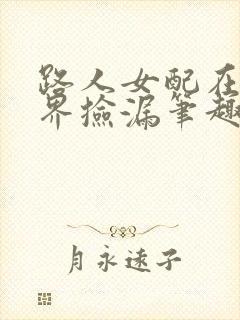 路人女配在
界捡漏笔趣
月永远子